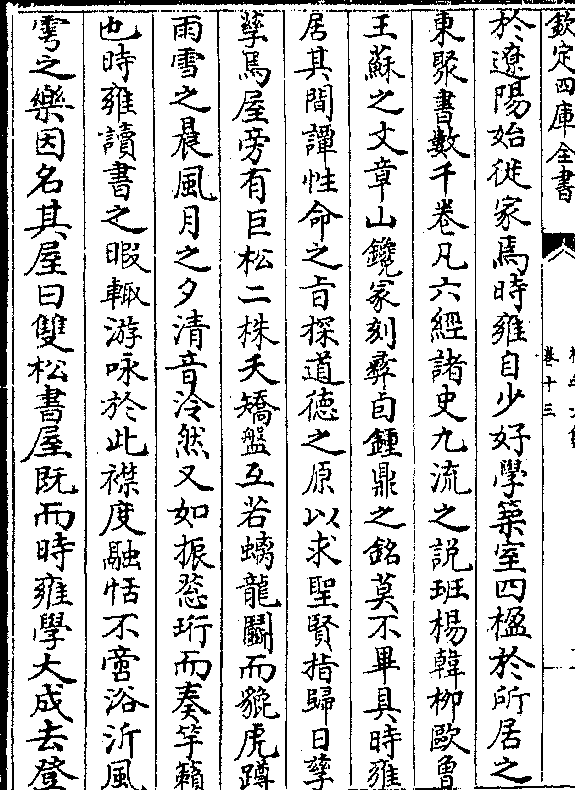 欽定四庫全書
卷十三
於遼陽始徙家焉時雍自少好學築室四楹於所居之
東聚書數千卷凡六經諸史九流之説班楊韓柳歐曽
王蘇之文章山鑱冢刻彛卣鍾鼎之銘莫不畢具時雍
居其間譚性命之旨探道德之原以求聖賢指歸日孳
孳焉屋旁有巨松二株夭矯盤互若螭龍鬭而貔虎蹲
雨雪之晨風月之夕清音泠然又如振蔥珩而奏竽籟
也時雍讀書之暇輙游咏於此襟度融恬不啻浴沂風
雩之樂因名其屋曰雙松書屋既而時雍學大成去登